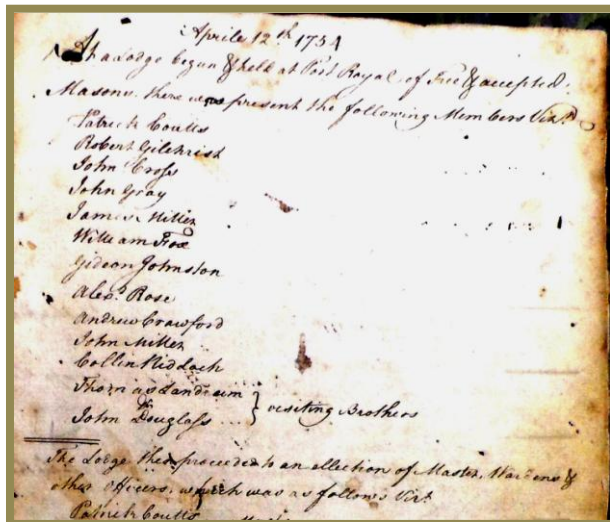 Aprile 12th 1754
At a Lodge begun & held at Port Royal of Free & accepted
Masons. there were present the following Members Vizt
Patrick Coutts
Robert Gilchrist
John Cross
John Gray
James Miller
William Fox
Gideon Johnston
Alexr Rose
Andrew Crawford
John Miller
Collin Riddoch
Thomas Landrum
John Douglass ... } visiting Brothers
The Lodge then proceeded to an ellection of Master, Wardens &
other Officers, which was as follows Vizt
Patrick Coutts